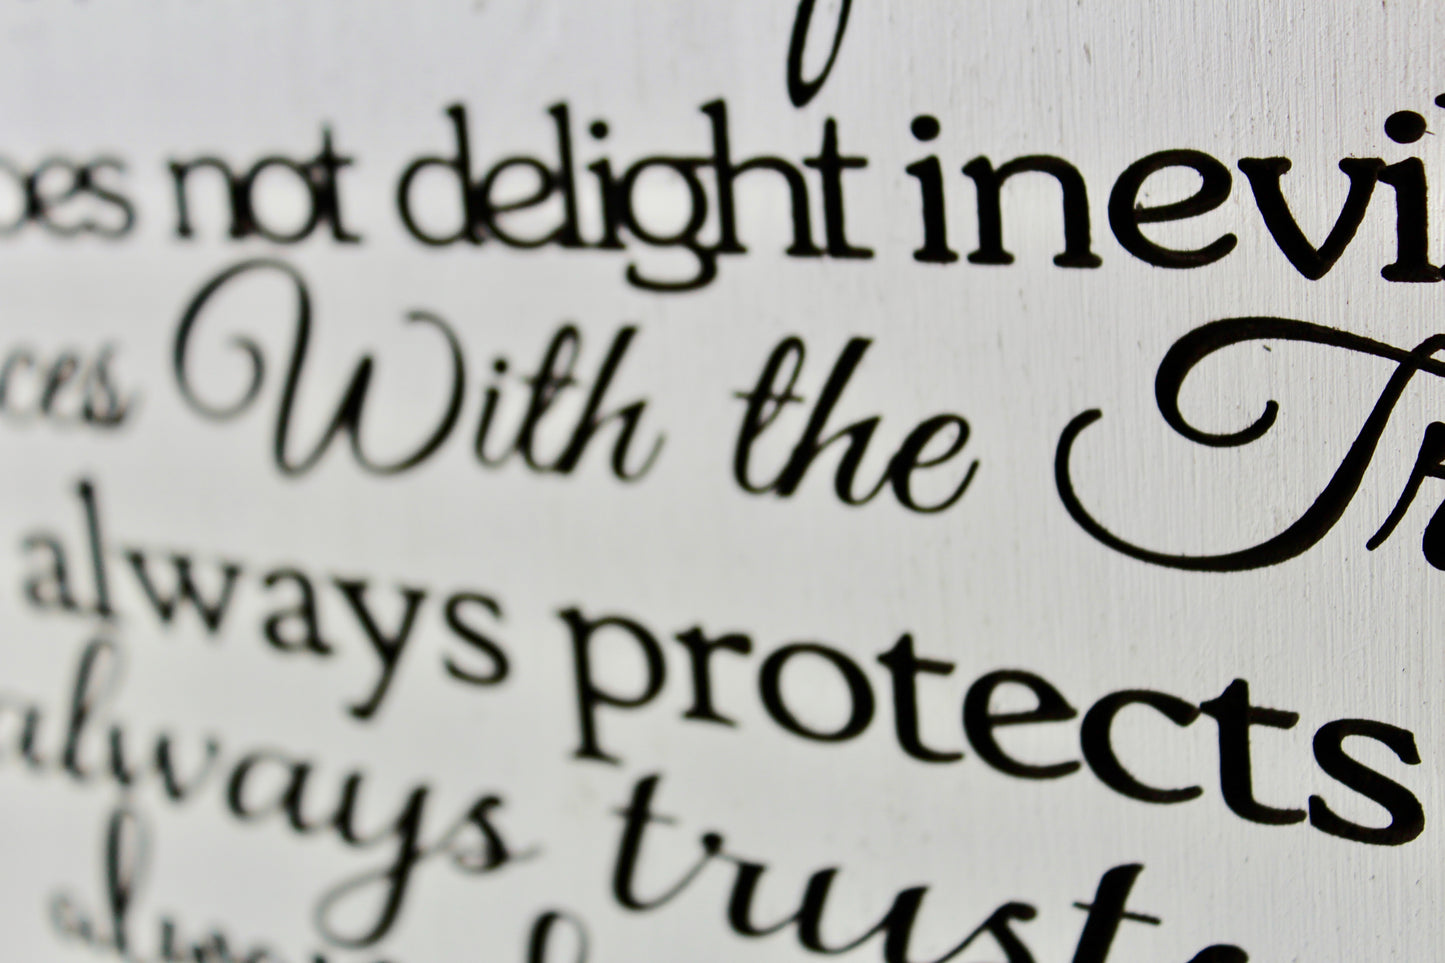 oes not delight inevi
ces With the Tr
always protects
always trusts
always h